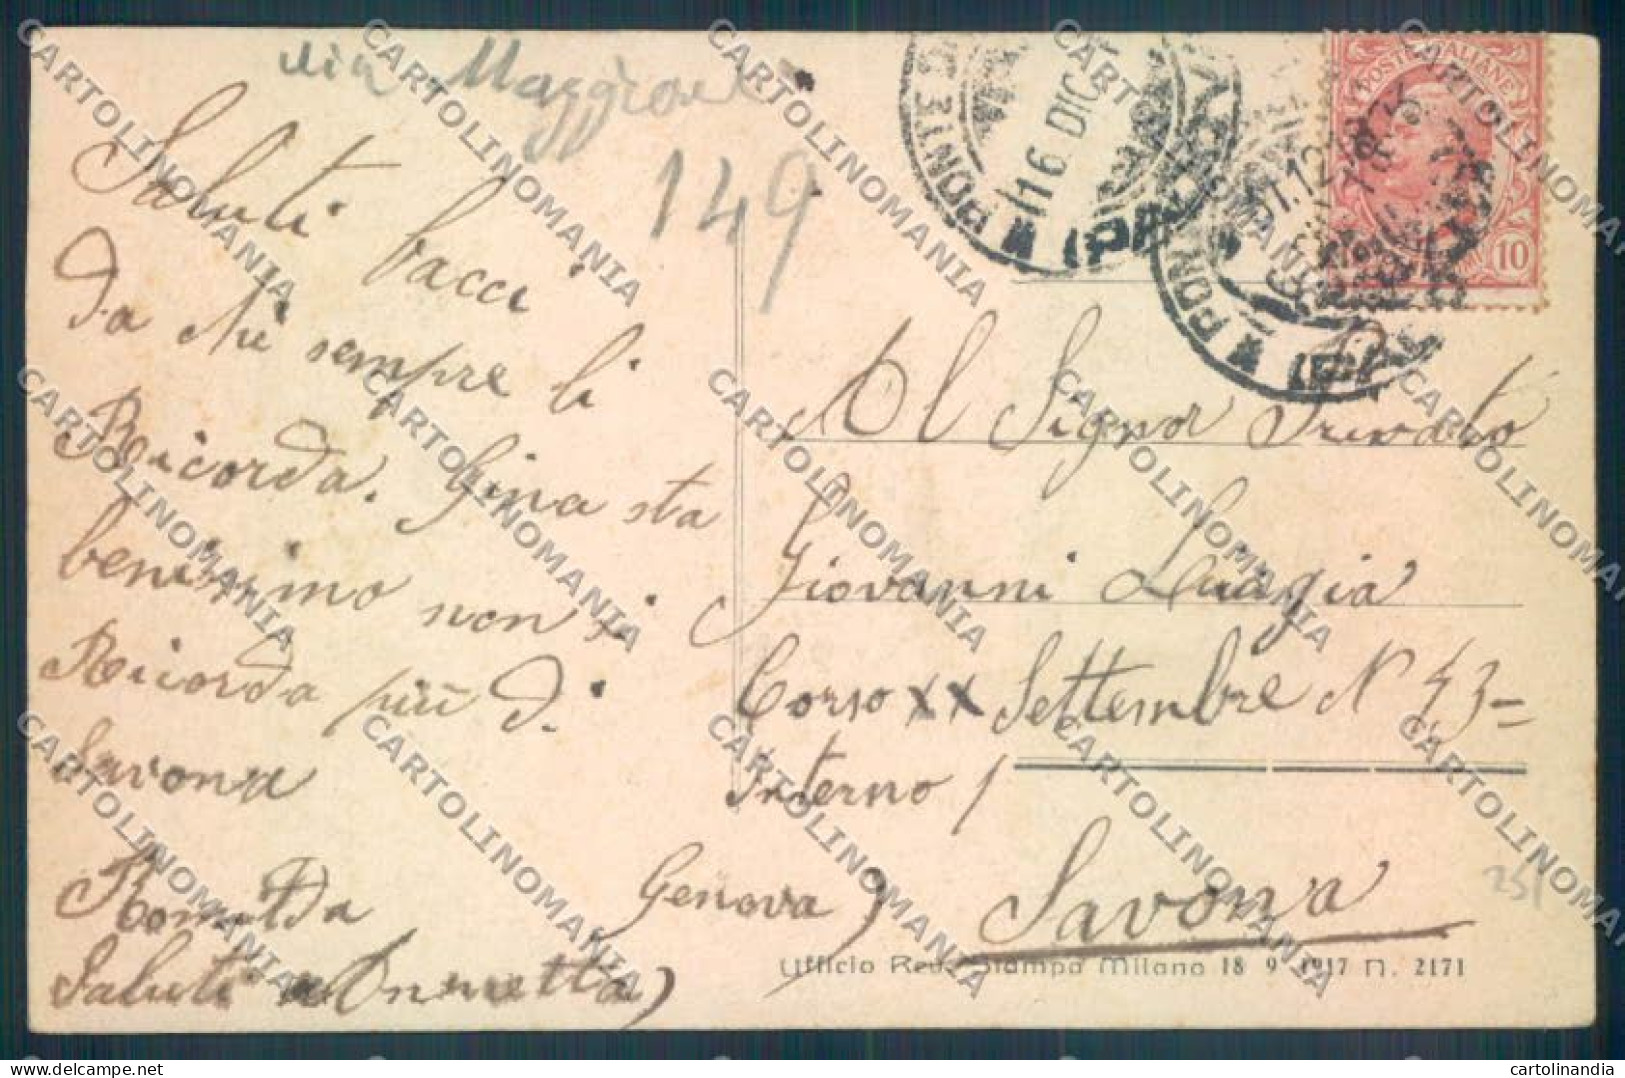 via Maggiore
149
Saluti bacci
Da chi sempre li
Ricorda. Gina sta
benissimo non si
Ricorda più di
Savona
Romilda
Saluti a
PONTE
16 DIC
POSTE ITALIANE
10
Al Signor Privato
Giovanni Luigia
Corso XX Settembre N 43-
Interno 1
Genova) Savona
251
Ufficio Rev. Stampa Milano 18 9 1917 N. 2171
CARTOLINOMANIA
cartolinandia